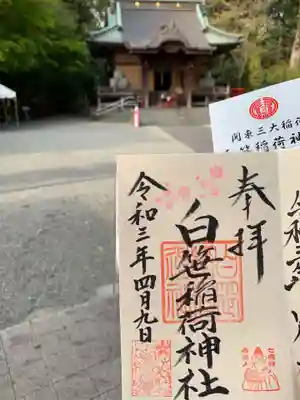 奉拝
白笹稲荷神社
令和三年四月九日
関東三大稲荷